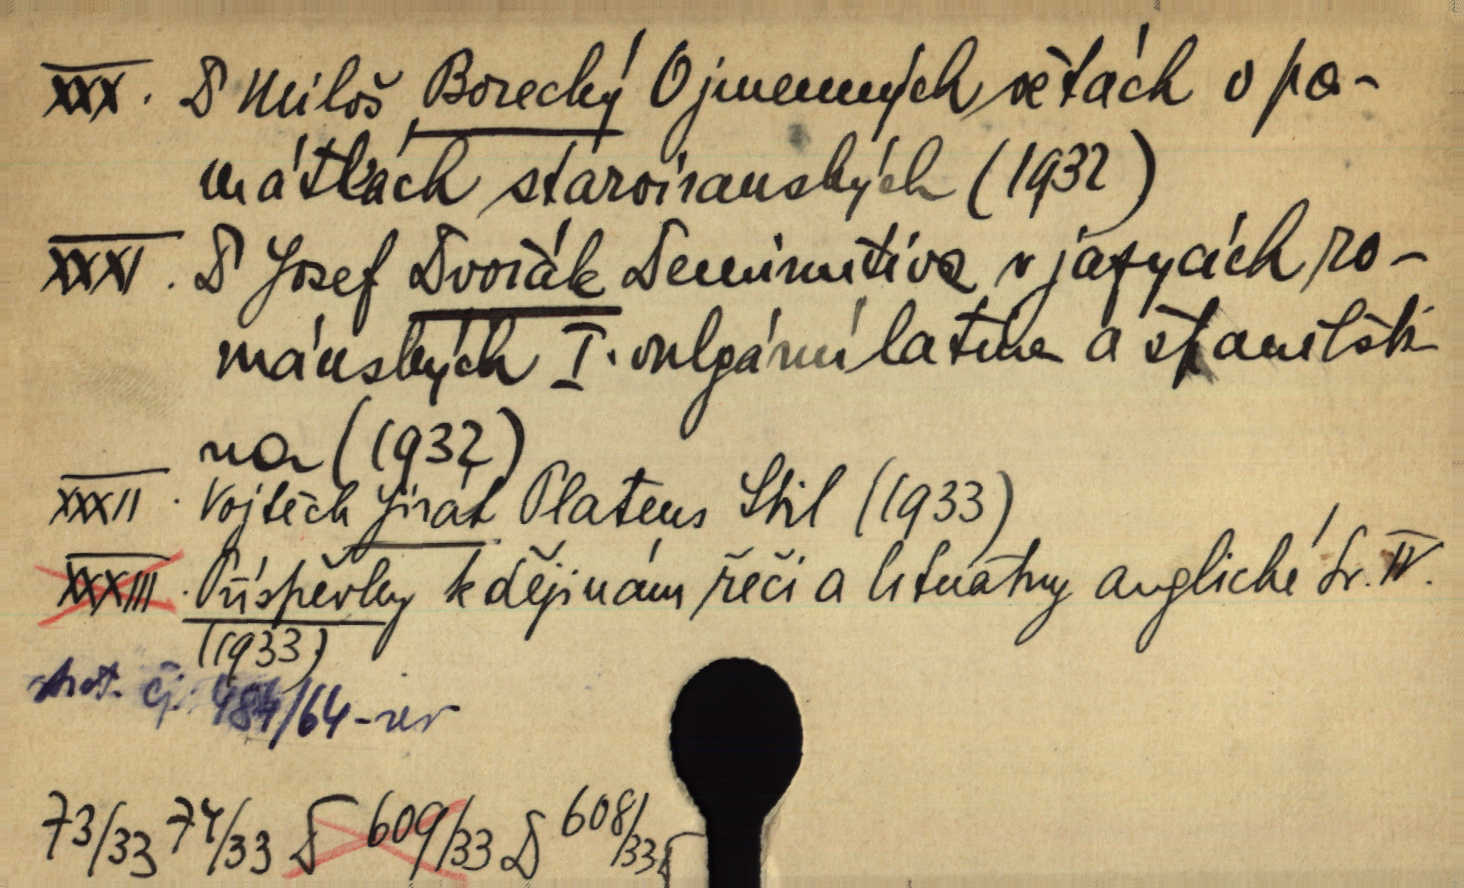 XXX. D Miloš Borecký O jmenných větách v pa-
mátkách staroíranských (1932)
XXXI. D Josef Dvořák Deminutiva v jazycích ro-
mánských I. vulgární latina a španělšti-
na (1932)
XXXII. Vojtěch Jirát Platens Stil (1933)
XXXIII. Příspěvky k dějinám řeči a literatury anglické Sv. IV.
(1933)
čj. 484/64-rev
73/33 74/33 D 609/33 D 608/33